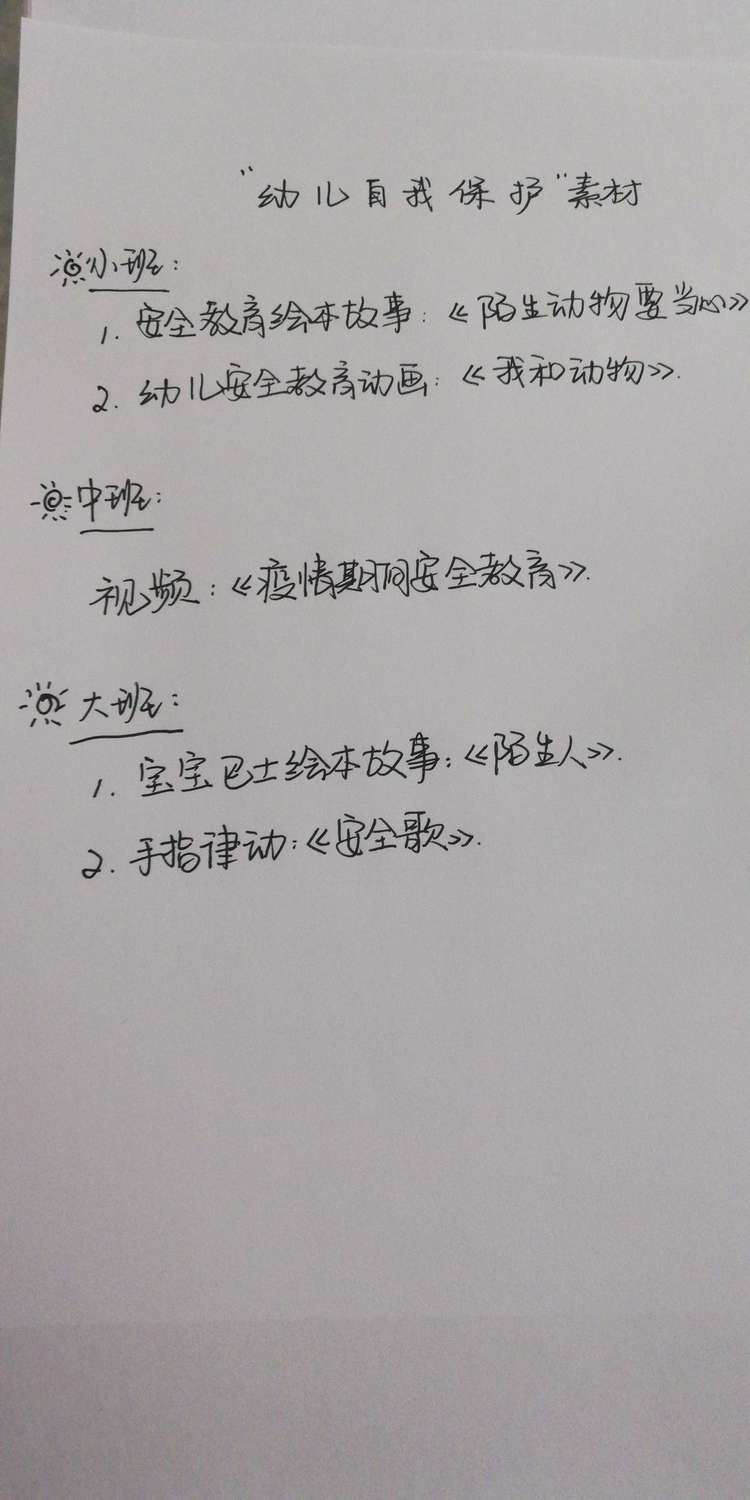 “幼儿自我保护”素材
小班：
1. 安全教育绘本故事：《陌生动物要当心》
2. 幼儿安全教育动画：《我和动物》.
中班：
视频：《疫情期间安全教育》.
大班：
1. 宝宝巴士绘本故事：《陌生人》.
2. 手指律动：《安全歌》.